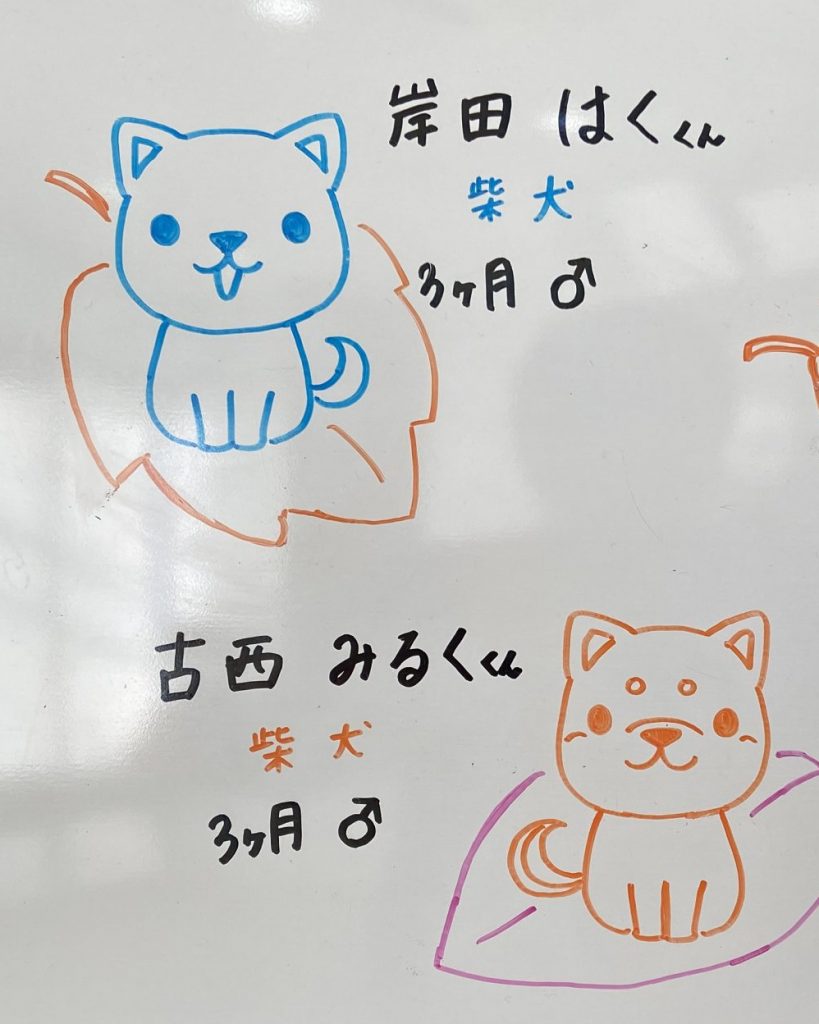 岸田 はくくん
柴犬
3ヶ月 ♂
古西 みるくくん
柴犬
3ヶ月 ♂